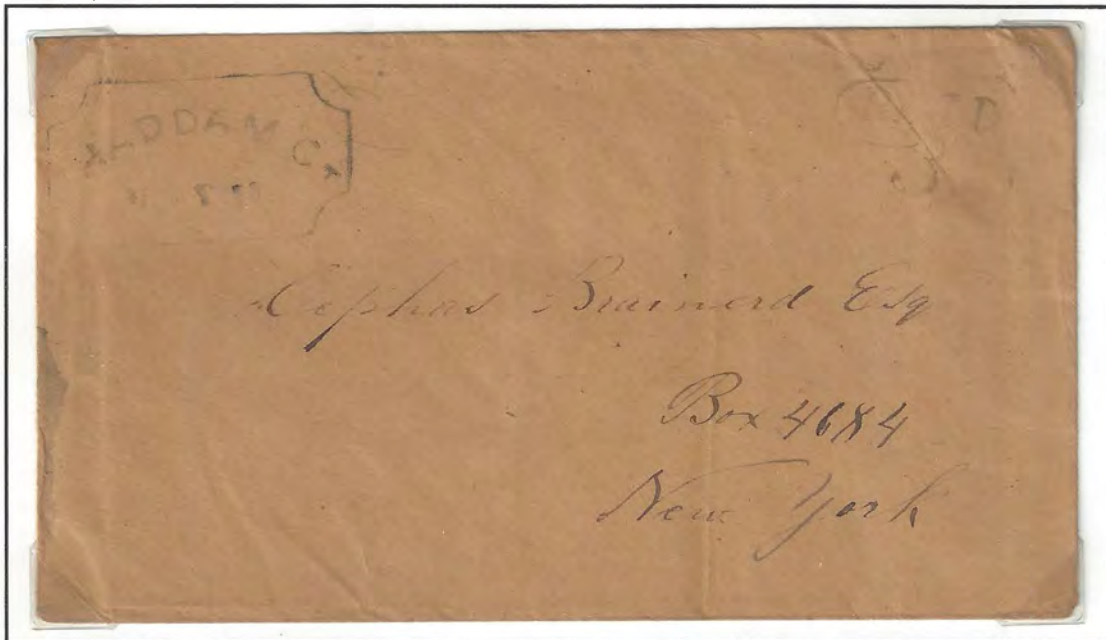 HADDAM Ct
D
Cephas Brainerd Esq
Box 4684
New York